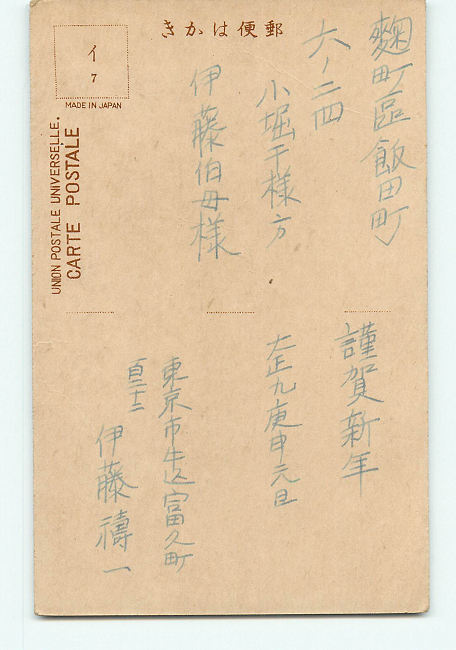 郵便はかき
イ
7
MADE IN JAPAN
UNION POSTALE UNIVERSELLE.
CARTE POSTALE
麴町區飯田町
六ノ二四
小堀干様方
伊藤伯母様
謹賀新年
大正九庚申元旦
東京市牛込富久町
百二十二
伊藤禱一